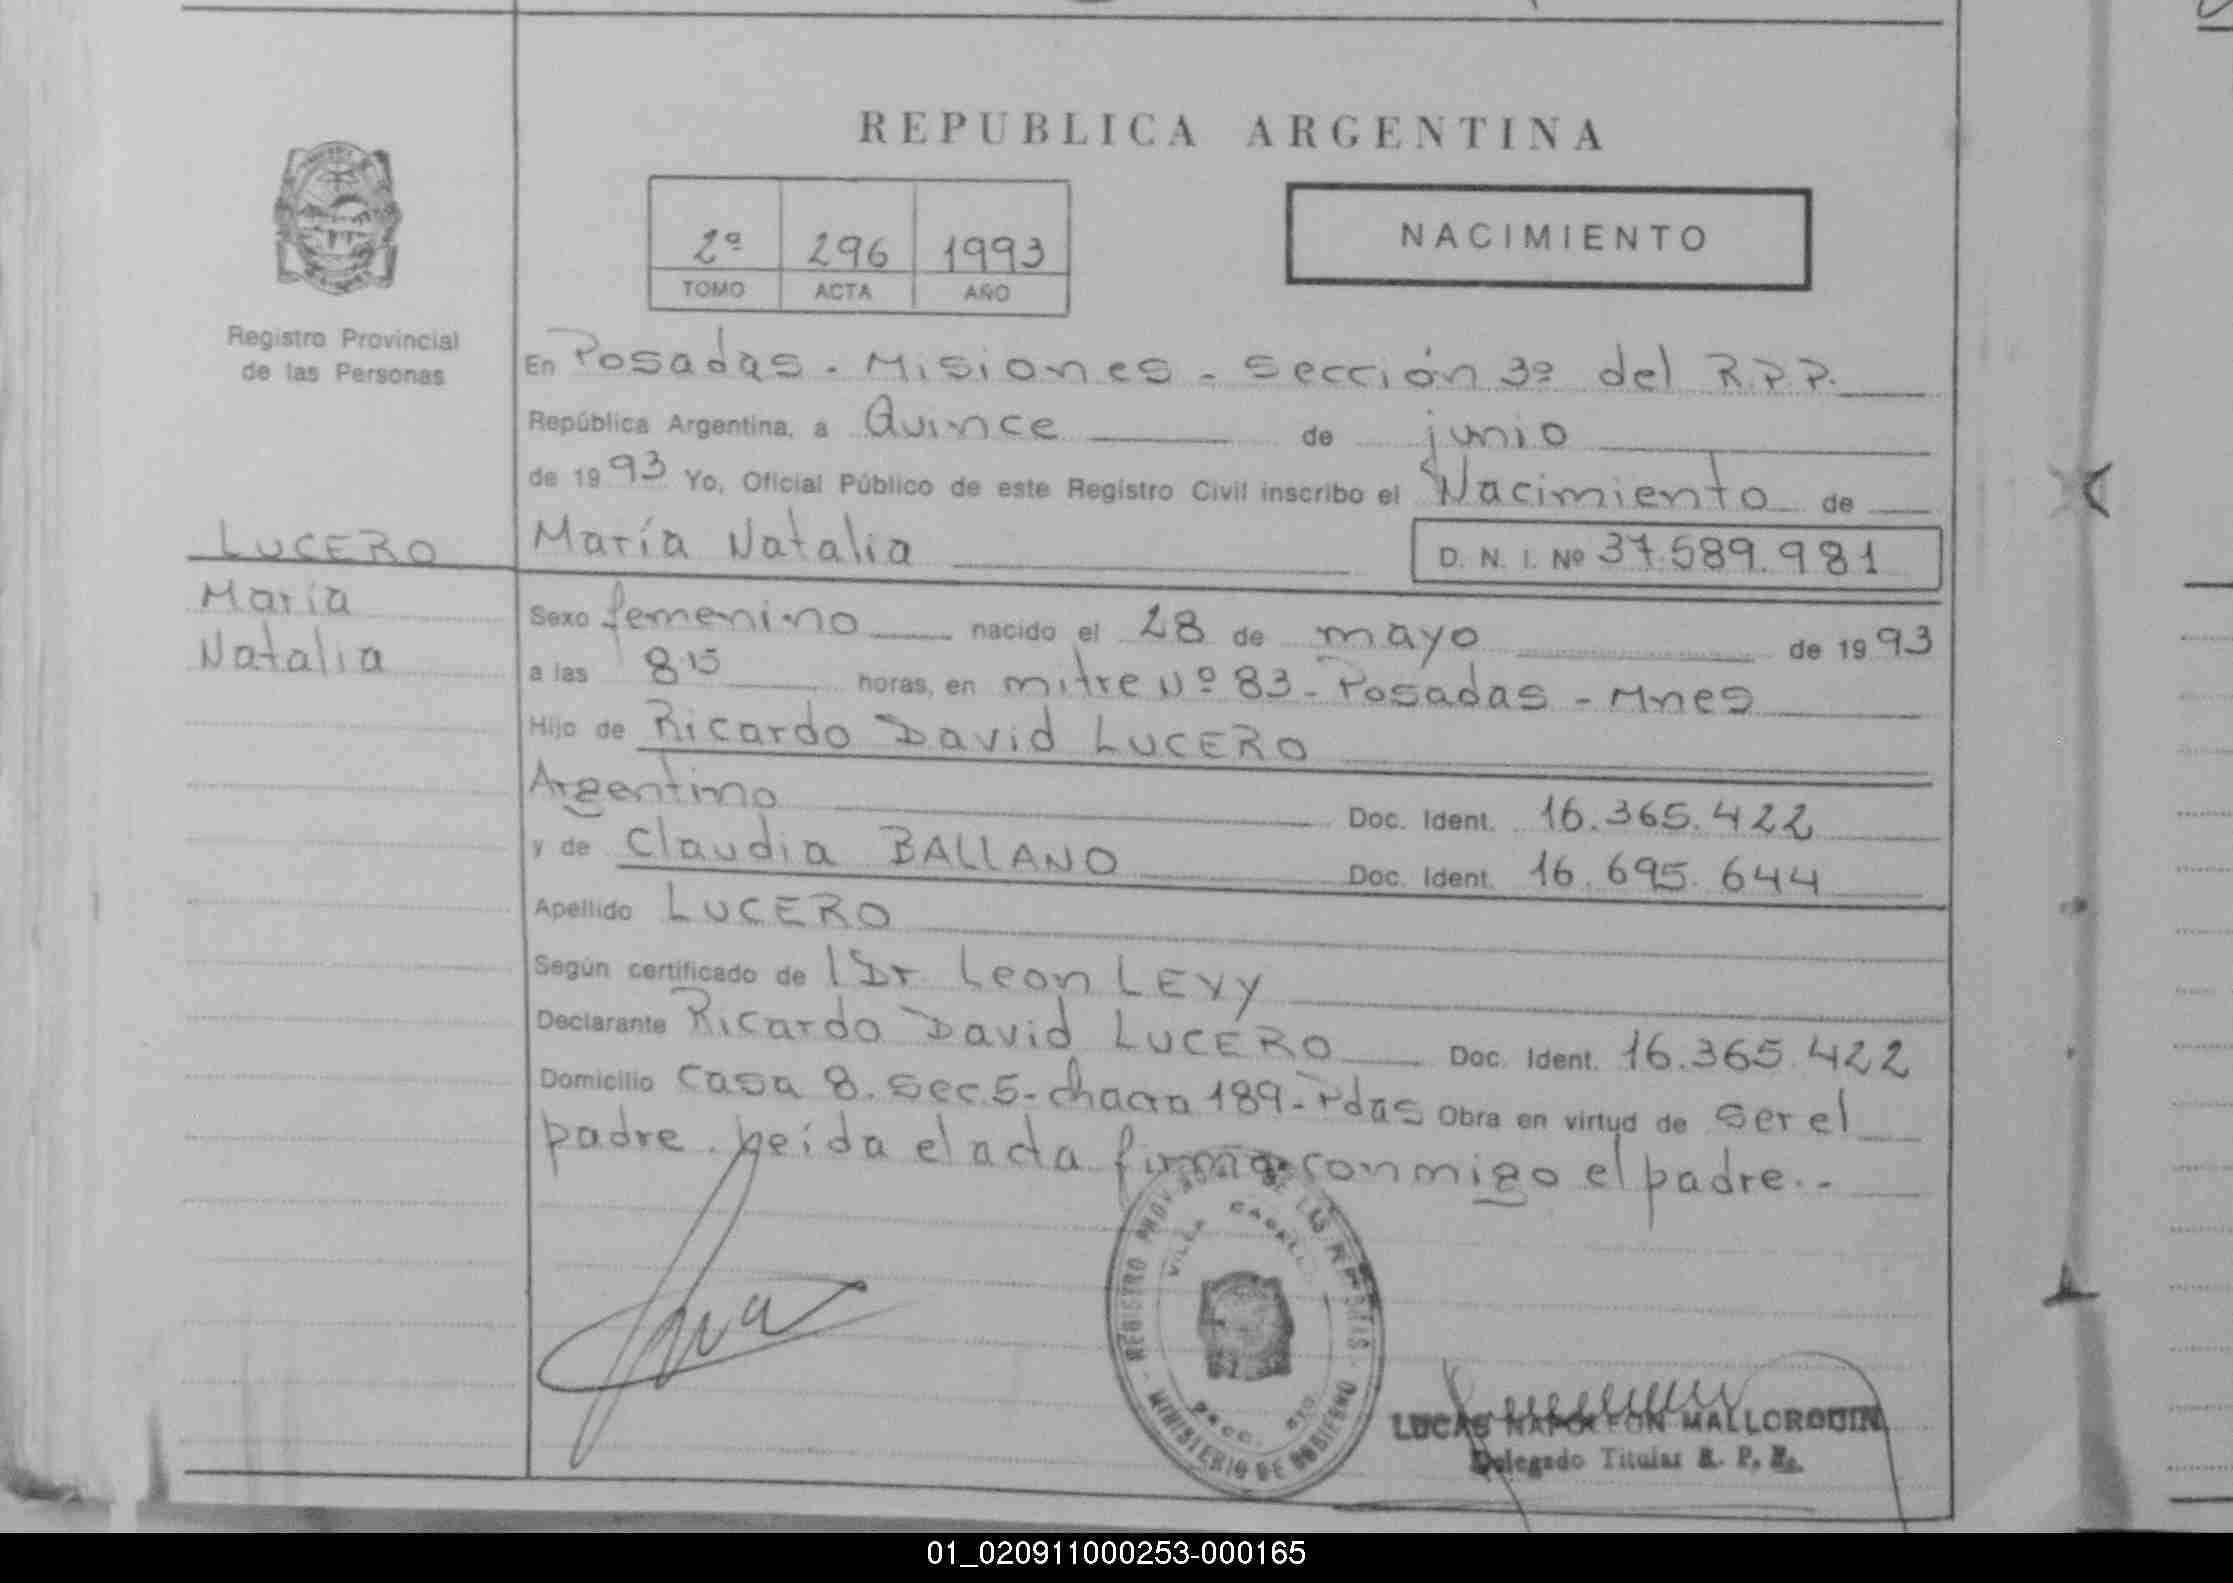 REPUBLICA ARGENTINA
2º 296 1993
TOMO ACTA AÑO
NACIMIENTO
Registro Provincial
de las Personas
En Posadas. Misiones - Sección 3º del R.P.P.
República Argentina, a Quince de junio
de 1993 Yo, Oficial Público de este Registro Civil inscribo el Nacimiento de
LUCERO
María
Natalia
María Natalia D. N. I. Nº 37.589.981
Sexo femenino nacido el 28 de mayo de 1993
a las 8.15 horas, en mitre Nº 83 - Posadas - Mnes
Hijo de Ricardo David LUCERO
Argentino Doc. Ident. 16.365.422
y de Claudia BALLANO Doc. Ident. 16.695.644
Apellido LUCERO
Según certificado de l Dr. Leon LEVY
Declarante Ricardo David LUCERO Doc. Ident. 16.365.422
Domicilio Casa 8. Sec 5 - chacra 189 - Pdas Obra en virtud de ser el
padre. Leída el acta firma conmigo el padre..-
REGISTRO PROV. DE LAS PERSONAS
VILLA CABELLO
MINISTERIO DE GOBIERNO
LUCAS NAPOLEON MALLORQUIN
Delegado Titular R. P. P.
01_020911000253-000165